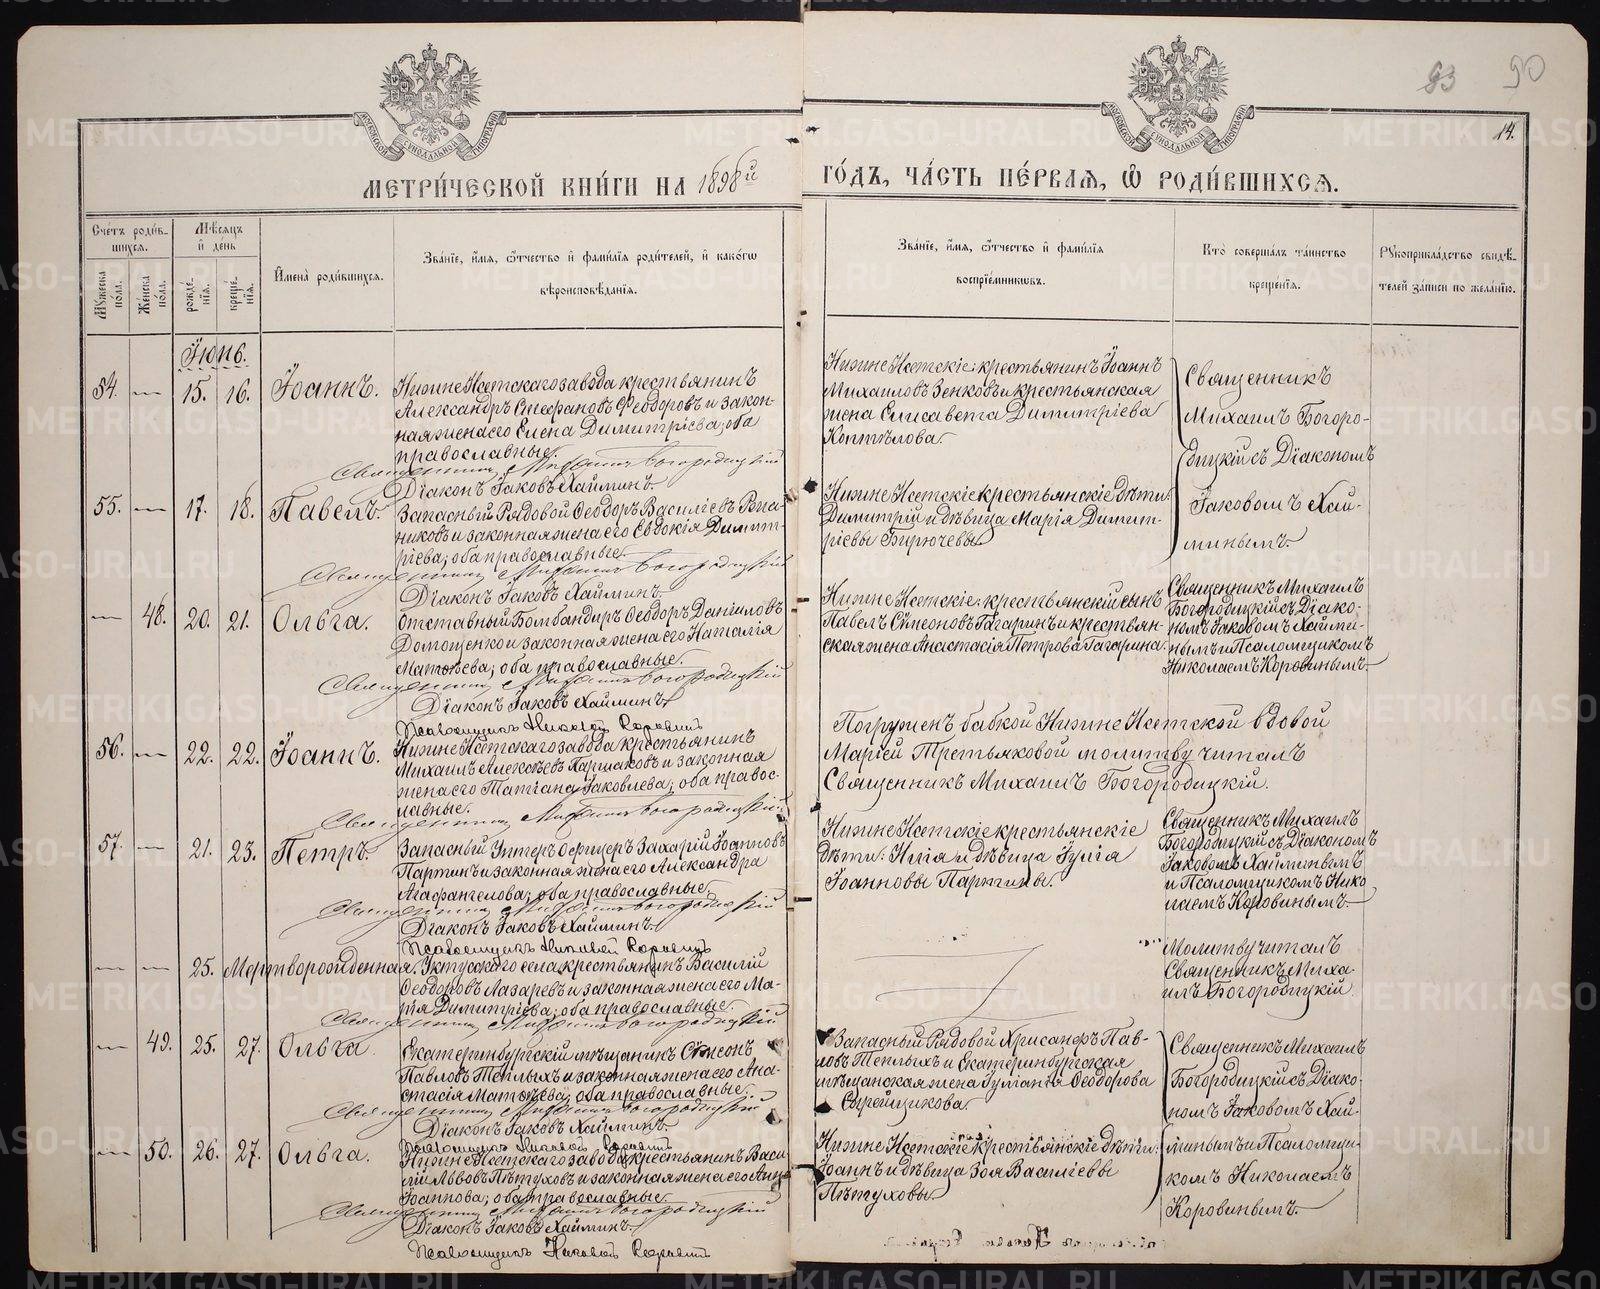 93 90
14.
МОСКОВСКОЙ СѴНОДАЛЬНОЙ ТИПОГРАФІИ
МОСКОВСКОЙ СѴНОДАЛЬНОЙ ТИПОГРАФІИ
МЕТРИ́ЧЕСКОЙ КНИ́ГИ НА 1898й ГО́ДЪ, ЧА́СТЬ ПЕ́РВАЯ, Ѿ РОДИ́ВШИХСЯ.
Счетъ родившихся.
Мужеска пола.
Женска пола.
Мѣсяцъ и день
рожденія.
крещенія.
Имена родившихся.
Званіе, имя, отчество и фамилія родителей, и какогѡ
вѣроисповѣданія.
Званіе, имя, отчество и фамилія
воспріемниковъ.
Кто совершалъ таинство
крещенія.
Рукоприкладство свидѣ-
телей записи по желанію.
Іюнь.
54. — 15. 16. Іоаннъ.
Нижне Исетскаго завода крестьянинъ
Александръ Стефановъ Феодоровъ и закон-
ная жена его Елена Димитріева; оба
православные.
Священникъ Михаилъ Богородицкій
Діаконъ Іаковъ Хайминъ.
Нижне Исетскіе: крестьянинъ Іоаннъ
Михаиловъ Зенковъ и крестьянская
жена Елисавета Димитріева
Коптѣлова.
Священникъ
Михаилъ Богоро-
дицкій съ Діакономъ
Іаковомъ Хай-
минымъ.
55. — 17. 18. Павелъ.
Запасный Рядовой Ѳеодоръ Василіевъ
и законная жена его Евдокія Димит-
ріева; оба православные.
Священникъ Михаилъ Богородицкій
Діаконъ Іаковъ Хайминъ.
Нижне Исетскіе крестьянскіе дѣти:
Димитрій и дѣвица Марія Димит-
ріевы Бирючевы.
— 48. 20. 21. Ольга.
Отставный Бомбандиръ Ѳеодоръ Даніиловъ
Домощенко и законная жена его Наталія
Матѳеева; оба православные.
Священникъ Михаилъ Богородицкій
Діаконъ Іаковъ Хайминъ.
Псаломщикъ Николай Коровинъ
Нижне Исетскіе: крестьянскій сынъ
Павелъ Сѵмеоновъ Гагаринъ и крестьян-
ская жена Анастасія Петрова Гагарина.
Священникъ Михаилъ
Богородицкій съ Діако-
номъ Іаковомъ Хайми-
нымъ и Псаломщикомъ
Николаемъ Коровинымъ
56. — 22. 22. Іоаннъ.
Нижне Исетскаго завода крестьянинъ
Михаилъ Алексѣевъ Паршаковъ и законная
жена его Татіана Іаковлева; оба правос-
лавные.
Священникъ Михаилъ Богородицкій
Погруженъ бабкой Нижне Исетской вдовой
Маріей Третьяковой молитву читалъ
Священникъ Михаилъ Богородицкій.
57. — 21. 23. Петръ.
Запасный Унтеръ Офицеръ Захарій Іоанновъ
Партинъ и законная жена его Александра
Агафангелова; оба православные.
Священникъ Михаилъ Богородицкій
Діаконъ Іаковъ Хайминъ.
Псаломщикъ Николай Коровинъ
Нижне Исетскіе крестьянскіе
дѣти: Илія и дѣвица Іулія
Іоанновы Партины.
Священникъ Михаилъ
Богородицкій съ Діакономъ
Іаковомъ Хайминымъ
и Псаломщикомъ Нико
лаемъ Коровинымъ
— — 25. Мертворожденная.
Уктусскаго села крестьянинъ Василій
Ѳеодоровъ Лазаревъ и законная жена его Ма-
рія Димитріева; оба православные.
Священникъ Михаилъ Богородицкій
Молитву читалъ
Священникъ Миха-
илъ Богородицкій
— 49. 25. 27. Ольга.
Екатеринбургскій мѣщанинъ Сѵмеонъ
Павловъ Теплыхъ и законная жена его Ана-
стасія Матѳеева; оба православные.
Священникъ Михаилъ Богородицкій
Діаконъ Іаковъ Хайминъ.
Псаломщикъ Николай Коровинъ
Запасный Рядовой Хрисанфъ Пав-
ловъ Теплыхъ и Екатеринбургская
мѣщанская жена Іуліанія Ѳеодорова
Сырейщикова.
Священникъ Михаилъ
Богородицкій съ Діако-
номъ Іаковомъ Хай-
минымъ и Псаломщи-
комъ Николаемъ
Коровинымъ.
— 50. 26. 27. Ольга.
Нижне Исетскаго завода крестьянинъ Васи
лій Львовъ Пѣтуховъ и законная жена его Анна
Іоаннова; оба православные.
Священникъ Михаилъ Богородицкій
Діаконъ Іаковъ Хайминъ.
Псаломщикъ Николай Коровинъ
Нижне Исетскіе крестьянскіе дѣти:
Іоаннъ и дѣвица Зоя Василіевы
Пѣтуховы.
METRIKI.GASO-URAL.RU